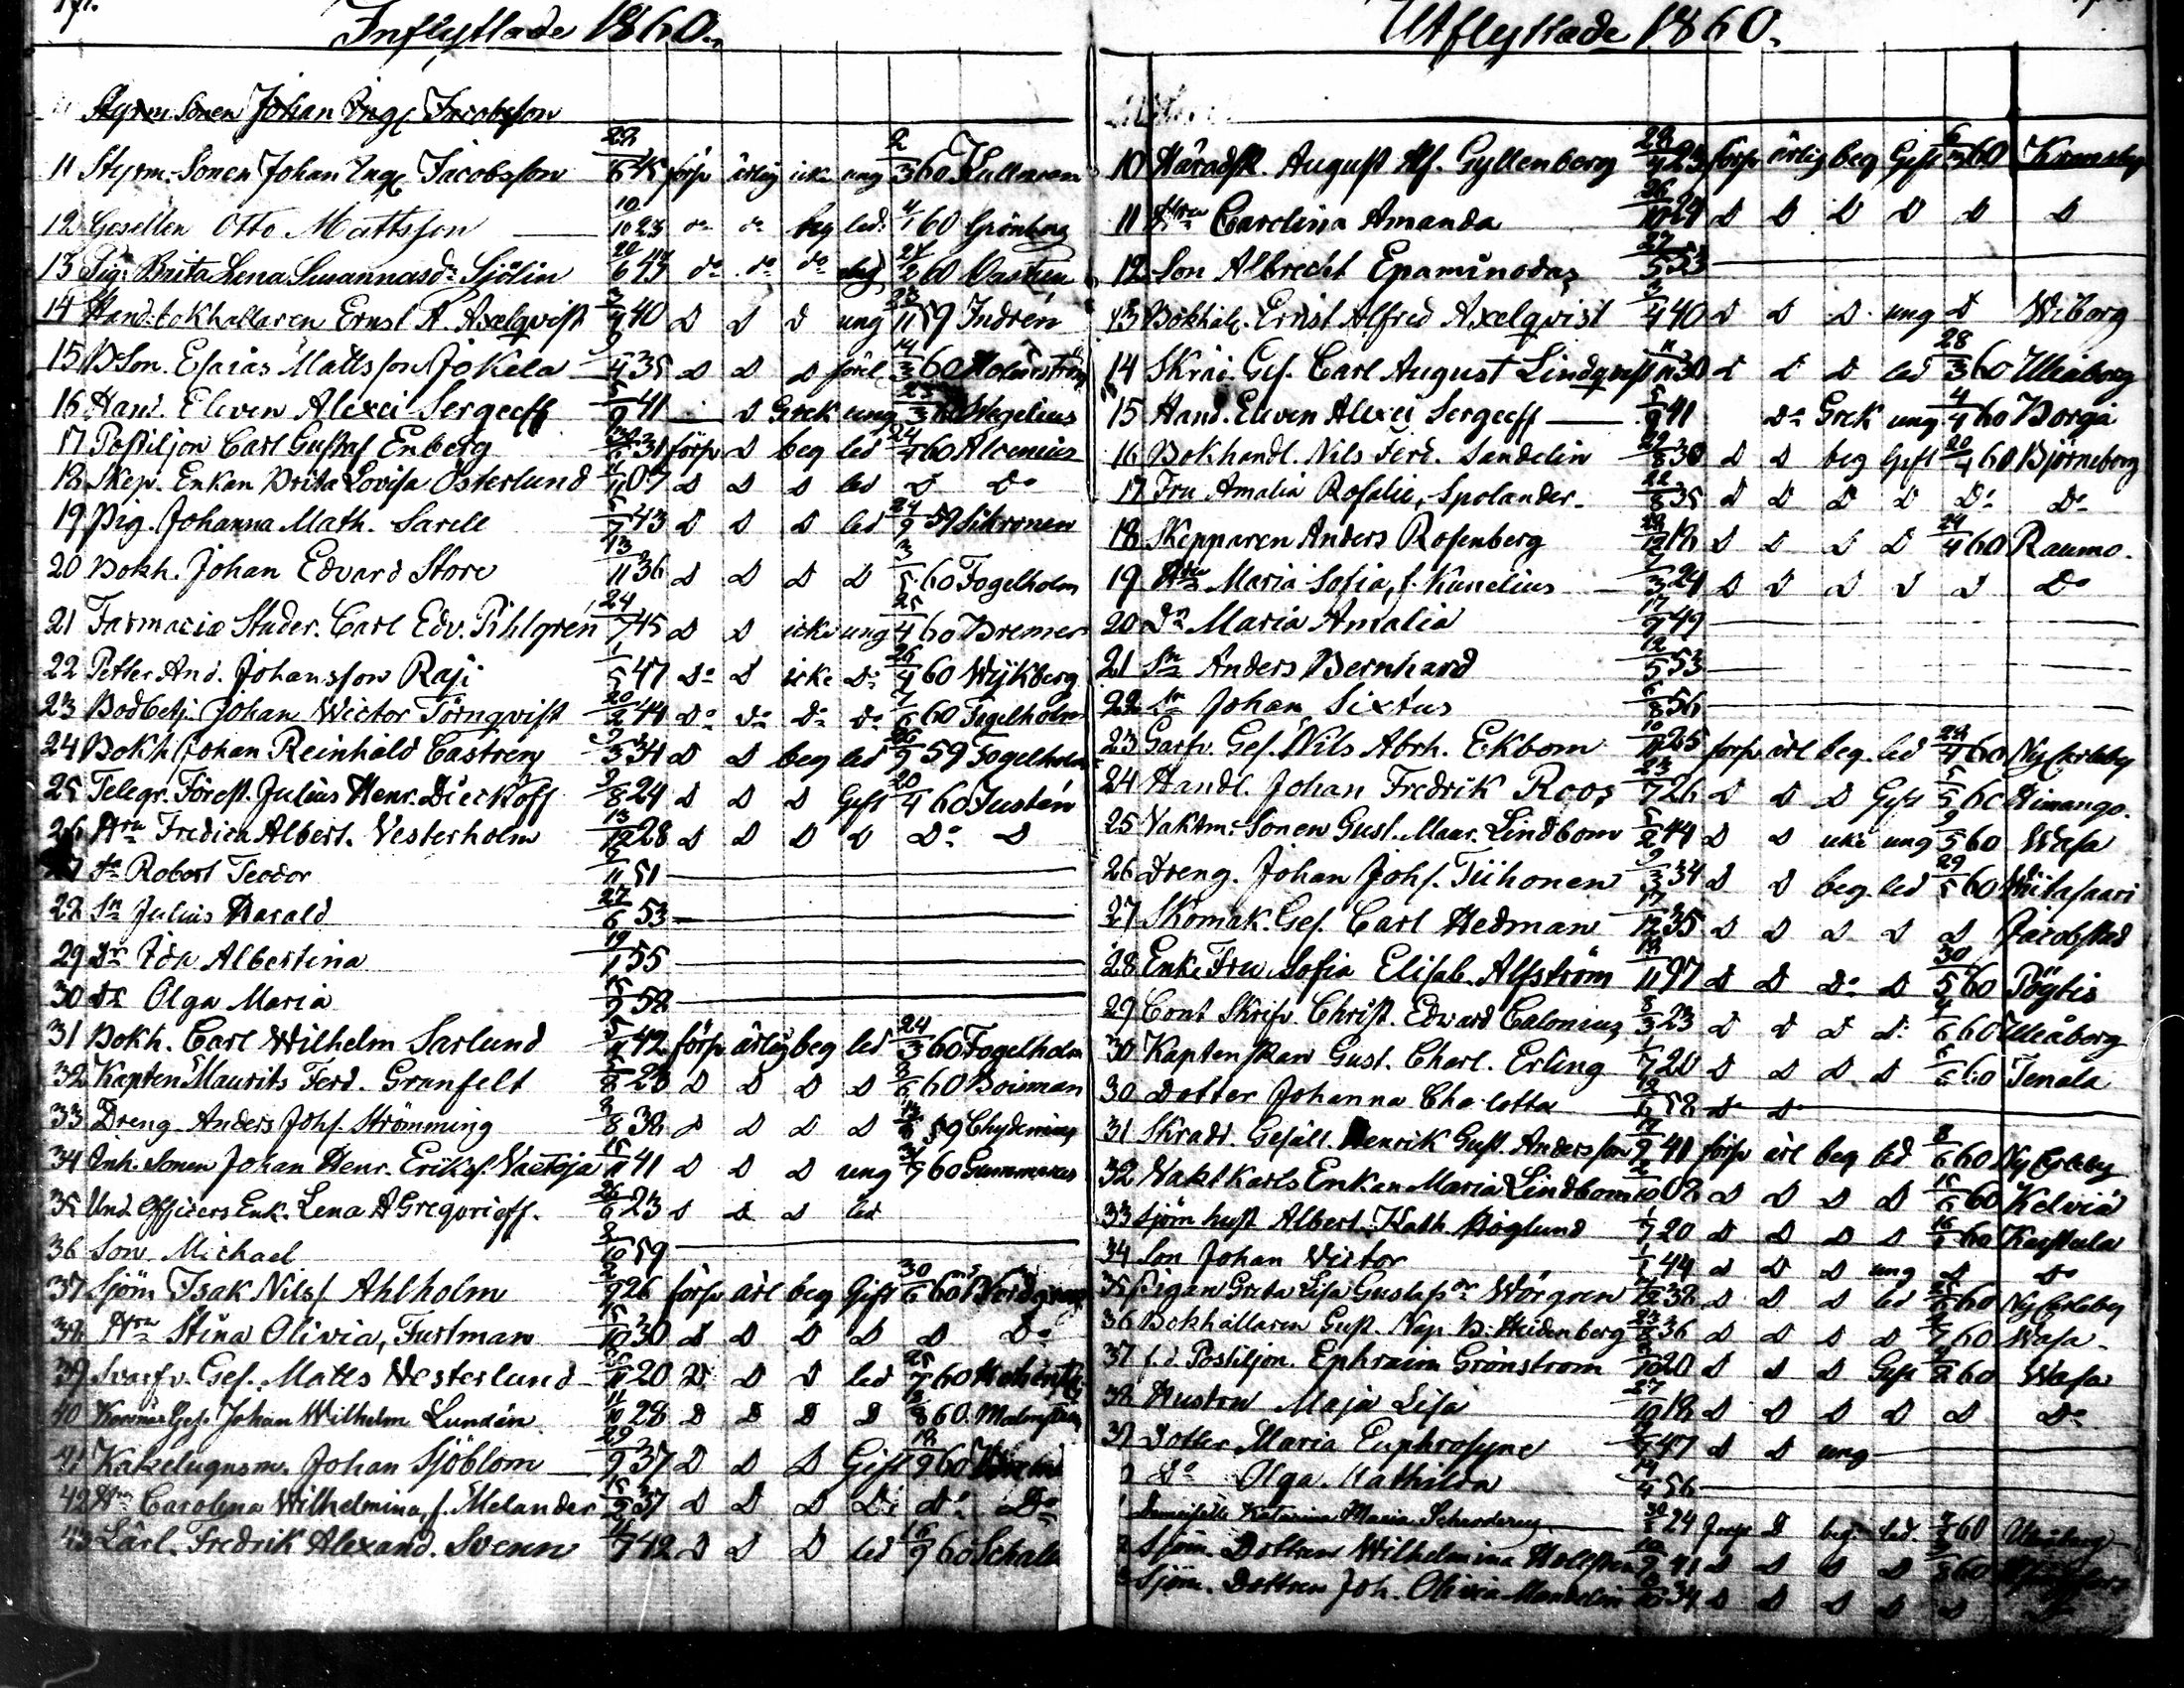 Inflyttade 1860.
Styrm. Sonen Johan Inge Jacobsson
11 Styrm. Sonen Johan Inge Jacobsson 22/6 45 förs. ärlig icke ung 2/3 60
12 Gesellen Otto Mattsson 10/10 23 do do beg led. 4/1 60 Grönberg
13 Pig. Brita Lena Susannasdr Sjölin do do do 60
14 Hand. bokhallaren Ernst A. Axelqvist 3/4 40 D D D ung 23/11 59 Indrén
15 BSon. Esaias Mattsson Jokela 9/4 35 D D D 14/3 60 Holmström
16 Hand. Eleven Alexei Sergeeff 5/9 41 D Grek ung Hegelius
17 Postiljon Carl Gustaf Enberg 31 förs. D beg led 24/4 60 Alcenius
18 Skep. Enkan Brita Lovisa Österlund 07 D D D led D Do
19 Pig. Johanna Math. Sarell 43 D D D led 24/9 59
20 Bokh. Johan Edvard Store 13/11 36 D D D D 3/5 60 Fogelholm
21 Farmaciæ Studer. Carl Edv. Pihlgrén 24/7 45 D D icke ung 25/4 60 Bremer
22 Petter And. Johansson Raji 1/5 47 Do D icke Do 26/4 60 Wijkberg
23 Bodbetj. Johan Wictor Törnqvist 20/2 44 Do Do Do Do 7/6 60 Fogelholm
24 Bokh. Johan Reinhold Castren 9/3 34 D D beg led 59 Fogelholm
25 Telegr. Förest. Julius Henr. Dieckoff 9/8 24 D D D Gift 20/4 60 Justén
26 Hru Fredica Albert. Vesterholm 13/12 28 D D D D Do D
27 Sn Robert Teodor 11 51
28 Sn Julius Harald 27/6 53
29 Dr Ida Albertina 19/1 55
30 Dr Olga Maria 58
31 Bokh. Carl Wilhelm Sarlund 42 förs. ärlig beg led 24/3 60 Fogelholm
32 Kapten Maurits Ferd. Granfelt D D D D 60 Boisman
33 Dreng Anders Johs. Strömming 38 D D D D 59 Chydenius
34 Inh. Sonen Johan Henr. Eriks. 41 D D D ung 60 Gummerus
35 Und. Officers Enk. Lena A Gregorieff. 26/6 23 D D D led
36 Son Michael 8/10 59
37 Sjöm Isak Nils. Ahlholm 26 förs. ärl beg Gift 30/6 60
38 Hru Stina Olivia, Furtman 30 D D D D D Do
39 Svarfv. Ges. Matts Vesterlund 20 D D D led 25/7 60
40 Ges. Johan Wilhelm Lundén 11/10 28 D D D D 60 Malmström
41 Kakelugnsm. Johan Sjöblom 29/9 37 D D D Gift 60
42 Hru Carolina Wilhelmina, f. Melander 37 D D D Do Do Do
43 Lärl. Fredrik Alexand. Svenn 42 D D D led 60
Utflyttade 1860.
10 Häradsh. August Alf. Gyllenberg 23 förs. ärlig beg Gift 6/3 60
11 Hru Carolina Amanda 26/10 D D D D D D
12 Son Albrecht Epaminodas 27/5 53
13 Bokhål. Ernst Alfred Axelqvist 3/4 40 D D D ung D Wiborg
14 Skräd. Ges. Carl August Lindqvist 30 D D D led 28/3 60 Uleåborg
15 Hand. Eleven Alexei Sergeeff 5/9 41 Do Grek ung 4/4 60 Borgå
16 Bokhandl. Nils Ferd. Sandelin 30 D D beg Gift 20/4 60 Björneborg
17 Fru Amalia Rosalie, Spolander 22/8 35 D D D D Do Do
18 Skepparen Anders Rosenberg 18 D D D D 24/4 60 Raumo.
19 Hru Maria Sofia, f. Kunelius 24 D D D D D Do
20 Dr Maria Amalia 17/9 49
21 Sn Anders Bernhard 12/5 53
22 Sn Johan Sixtus 6/8 56
23 Garfv. Ges. Nils Abrh. Ekbom 25 förs ärl beg. led 60 Ny Carleby
24 Handl. Johan Fredrik Roos 23/7 26 D D D Gift 5/5 60 Himango.
25 Vaktm. Sonen Gust. Maur. Lindbom 44 D D icke ung 9/5 60 Wasa
26 Dreng. Johan Johs. Tiihonen 9/3 34 D D beg. led 29/5 60 Wiitasaari
27 Skomak. Ges. Carl Hedman 17/12 35 D D D D D Jacobstad
28 Enk. Fru Sofia Elisab. Alfström 18/11 97 D D Do D 30/5 60 Pögtis
29 Cont. Skrifv. Christ. Edward Calonius 8/3 23 D D D D 60 Uleåborg
30 Kaptenskan Gust. Charl. Erling 1/7 20 D D D D 60 Tenala
30 Dotter Johanna Charlotta 58 D D
31 Skradd. Gesäll. Henrik Gust. Andersson 41 förs ärl beg led 8/6 60 Ny Carleby
32 Vakt Karls Enkan Maria Lindbom 02 D D D D 15/6 60 Kelviå
33 Sjöm hust Albert. Kath. Höglund 1/7 20 D D D D 60
34 Son Johan Victor 44 D D D ung D Do
35 Pigan Greta Lisa Gustafsdr Wörgren 38 D D D led 60 Ny Carleby
36 Bokhållaren Gust. Nap. B. Heidenberg 36 D D D D 60 Wasa
37 f. d. Postiljon. Ephraim Grönstrom 20 D D D Gift 60 Wasa
38 Hustru Maja Lisa 27/10 18 D D D D D Do
39 Dotter Maria Euphrosyne 47 D D ung
Do Olga Mathilda 14/4 56
Demoiselle Katarina Maria 24 D beg. led. 60
Sjöm. Dottren Wilhelmina 41 D D D D 60
Sjöm. Dottren Joh. Olivia 34 D D D D D